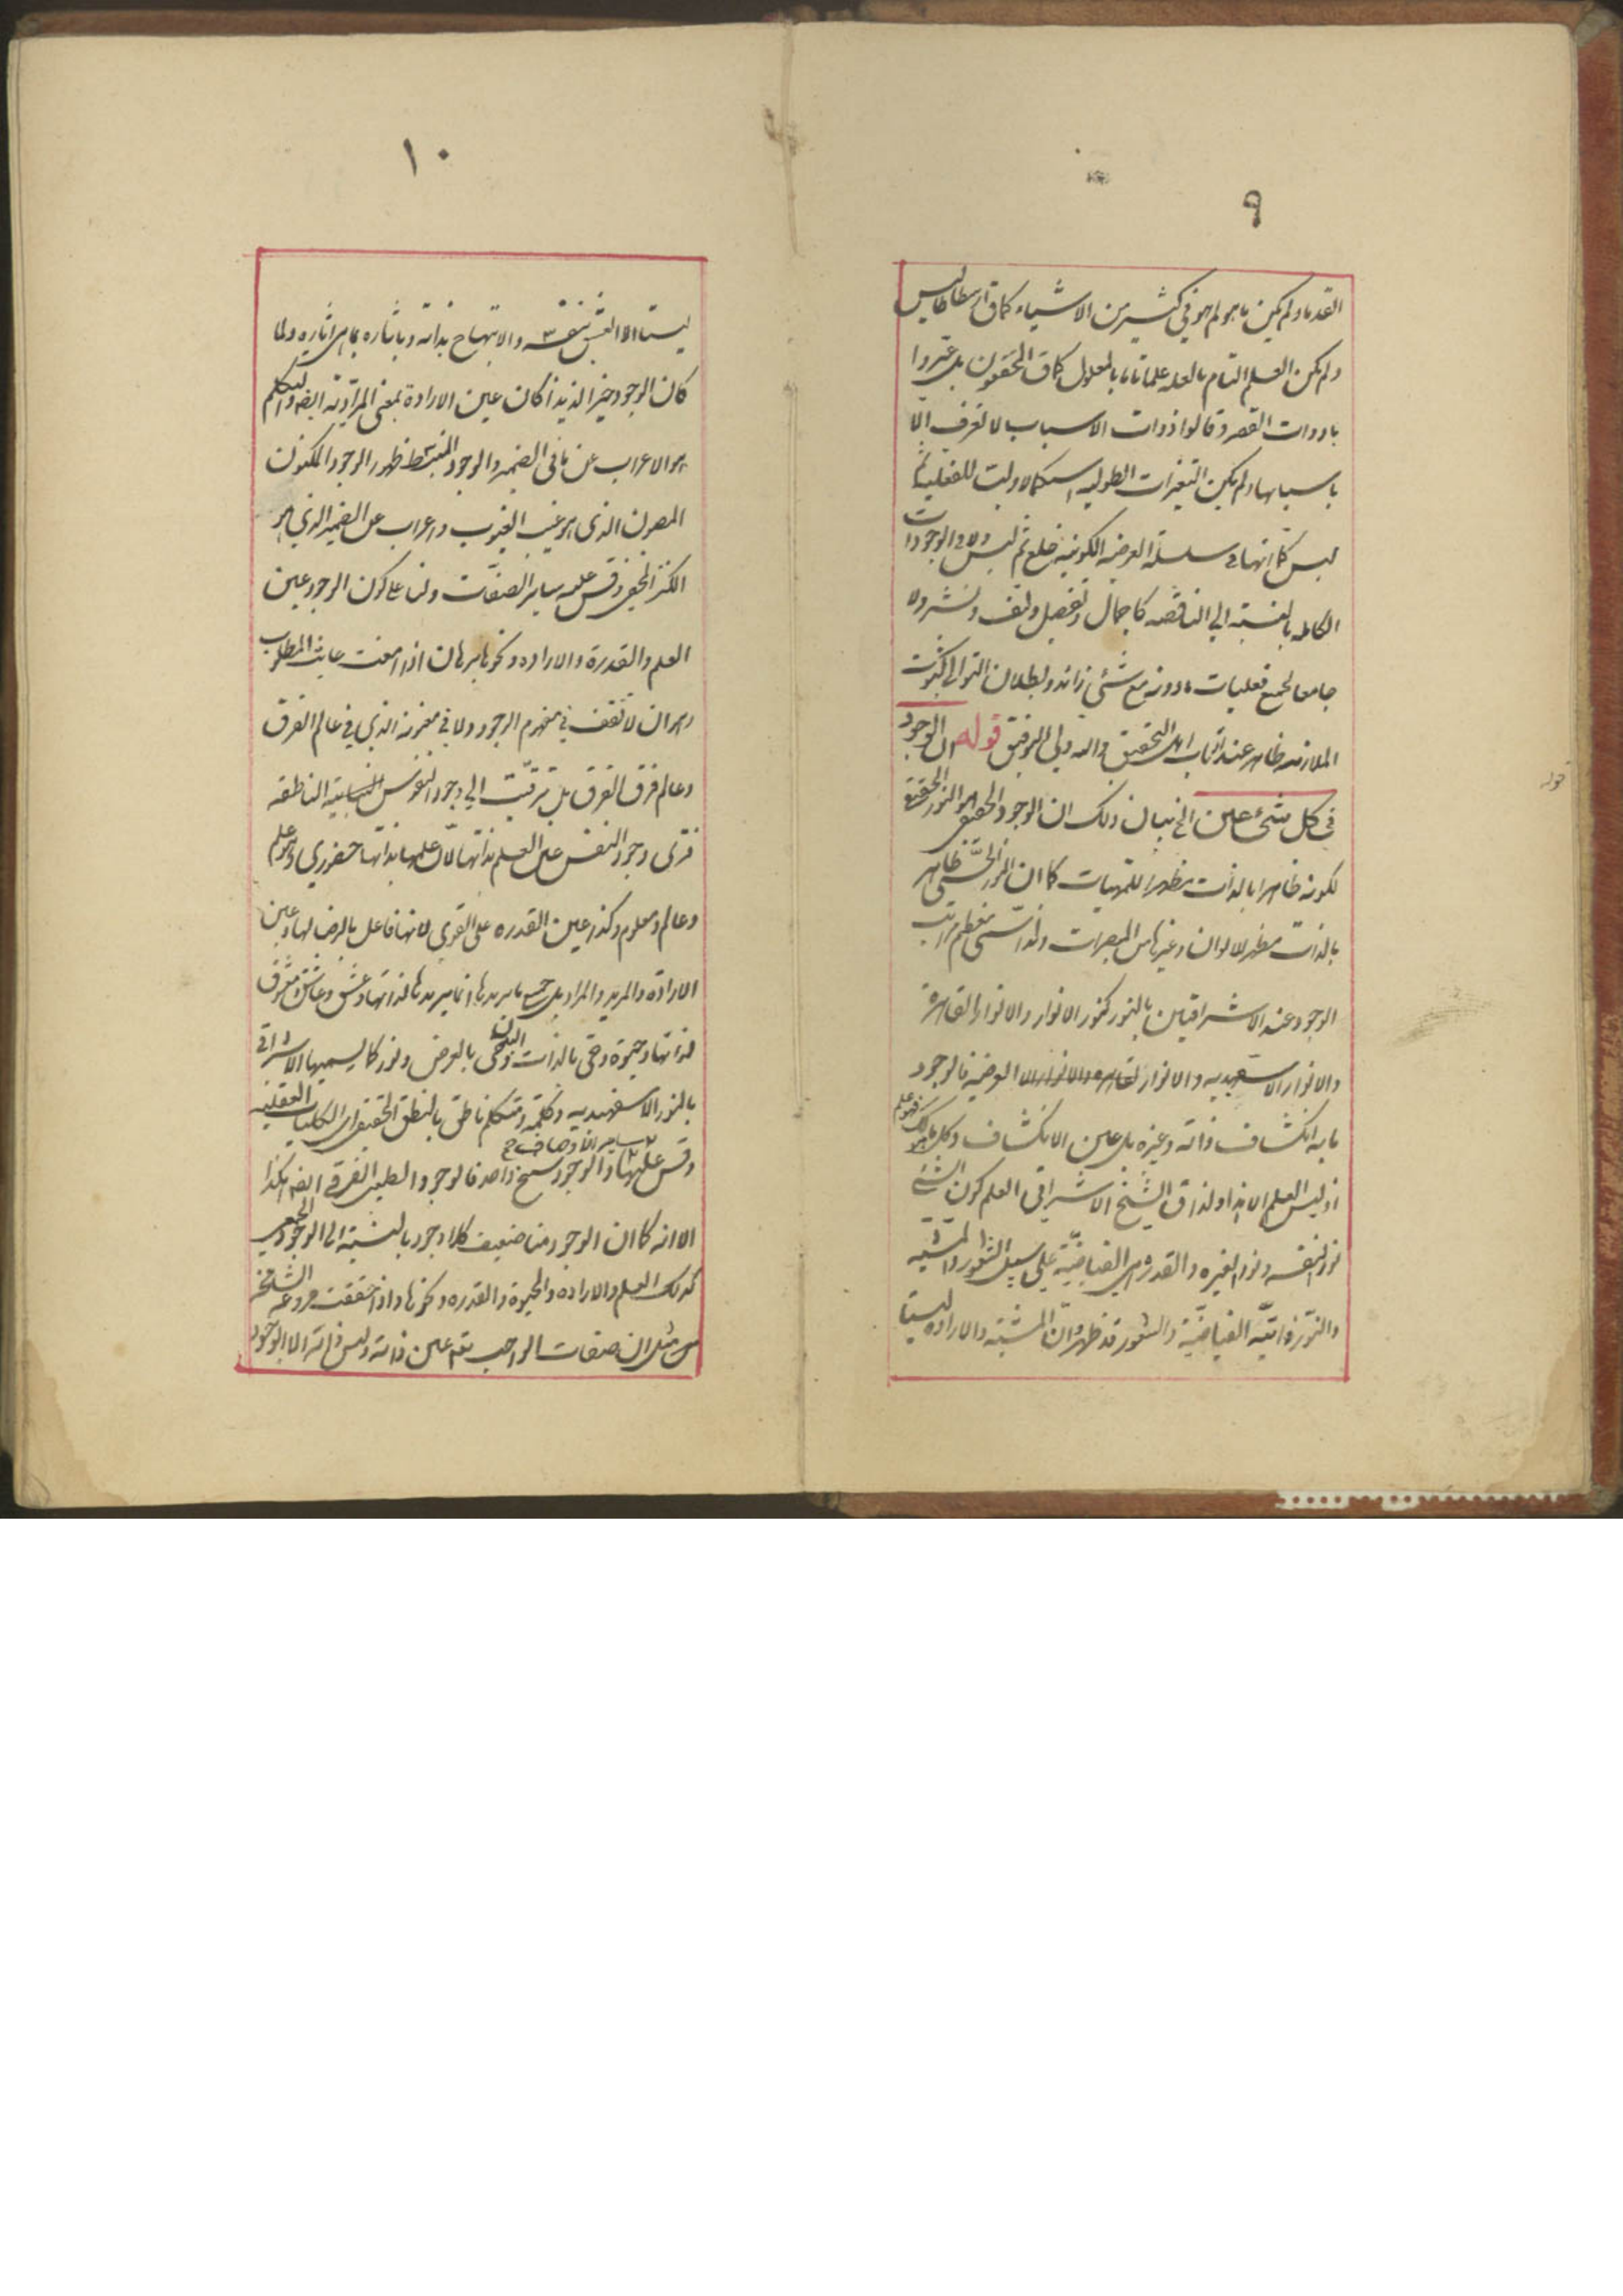 ٩
القدماء ولم يكن ما هو لم هو في كثير من الاشياء كما قال ارسطاطاليس
ولم يكن العلم التام بالعله علما تاما بالمعلول كما قال المحققون بل عبروا
بادوات القصر وقالوا ذوات الاسباب لا تعرف الا
باسبابها ولم يكن التغيرات الطوليه استكمالا وليت للفعليات ثم
لبس كما انها في سلسلة العرضيه الكونيه خلع ثم لبس ولا الوجودات
الكامله بالنسبة الى الناقصه كاجمال وتفصيل ولف ونشر ولا
جامعا لجميع فعليات مادونه مع شئ زائد وبطلان التوالي كثبوت
الملازمه ظاهر عند ارباب التحقيق والله ولي التوفيق قوله ان الوجود
في كل شئ عين الخ بيان ذلك ان الوجود الحقيقي هو النور الحقيقي
لكونه ظاهرا بالذات مظهرا للمهيات كما ان النور الحسي ظاهر
بالذات مظهر للالوان وغيرها من المبصرات ولذا سمي معظم مراتب
الوجود عند الاشراقيين بالنور كنور الانوار والانوار القاهرة
والانوار الاسفهبديه والانوار القاهره والانوار العرضيه فالوجود
ما به انكشاف ذاته وغيره بل عين الانكشاف وكل ما هو كذلك فهو علم
اذ ليس العلم الا هذا ولذا قال الشيخ الاشراقي العلم كون الشئ
نورا لنفسه ونورا لغيره والقدرة هي الفياضيّة على سبيل الشعور والمشيه
والنور ذاتيّه الفياضيّة والشعور قد ظهر وانّ المشيّه والاراده ليستا
قوله
١٠
ليستا الا العشق بنفسه والابتهاج بذاته وباثاره بما هي اثاره ولما
كان الوجود خيرا لذيذا كان عين الارادة بمعنى المراديّة ايضا والتكلم
هو الاعراب عن ما في الضمير والوجود المنبسط ظهور الوجود المكنون
المصون الذي هو غيب الغيوب واعراب عن الضمير الذي هو
الكنز المخفي وقس عليه سایر الصفات ولنا على كون الوجود عين
العلم والقدرة والاراده ونحوها برهان اذا امعنت عاينت المطلوب
وهو ان لا تقف في مفهوم الوجود ولا في معنونه الذي في عالم الفرق
وعالم فرق الفرق بل ترقّيت الى وجود النفوس النطقيه الناطقه
فترى وجود النفس عين العلم بذاتها لانّ علمها بذاتها حضوري وهو علم
وعالم ومعلوم وكذا عين القدره على القوى لانها فاعل بالرضا لها وعين
الارادة والمريد والمراد بل جميع ما يريدها انما يريدها لذاتها وعشق وعاشق ومعشوق
لذاتها وحيوة وحي بالذات والبدن حي بالعرض ونور كما يسميها الاشراقي
بالنور الاسفهبديه وكلمه ومتكلم ناطق بالنطق الحقيقي اي الكليات العقليه
وقس عليها سایر الاوصاف ح
والوجود سنخ واحد فالوجود الطبيعي الفرقي ايضا هكذا
الا انه كما ان الوجود هنا ضعيف كلا وجود بالنسبة الى الوجود الجمعي
كذلك العلم والاراده والحيوة والقدره ونحوها واذا حققت فروعه الشامخه
من مثل ان صفات الواجب تعم عين ذاته وليس ذاته الا الوجود